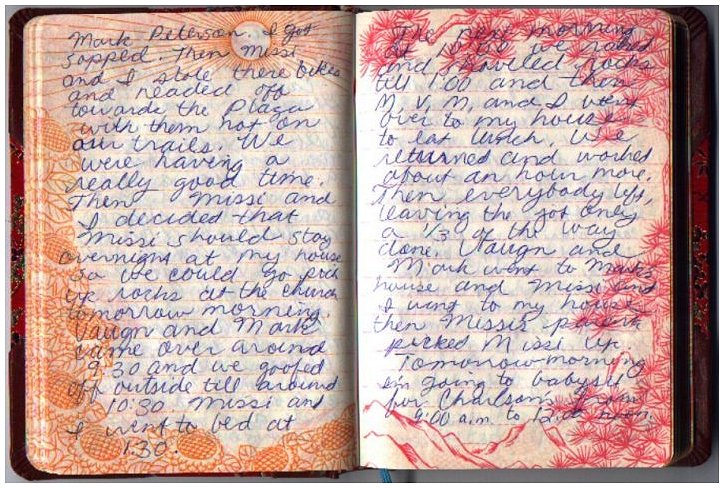 Mark Peterson. I got
sopped. Then Missi
and I stole there bikes
and headed off
towards the Plaza
with them hot on
our trails. We
were having a
really good time.
Then Missi and
I decided that
Missi should stay
overnight at my house
so we could go pick
up rocks at the church
tomorrow morning.
Vaughn and Mark
came over around
9:30 and we goofed
off outside till around
10:30. Missi and
I went to bed at
1:30.
The next morning
at 10:00 we raked
and shoveled rocks
till 1:00 and then
M, V, M, and I went
over to my house
to eat lunch. We
returned and worked
about an hour more.
Then everybody left,
leaving the job only
a 1/3 of the way
done. Vaughn and
Mark went to Mark's
house and Missi and
I went to my house
then Missis
picked Missi up.
Tomorrow morning
im going to babysit
for from
9:00 a.m. to 12:00 noon.